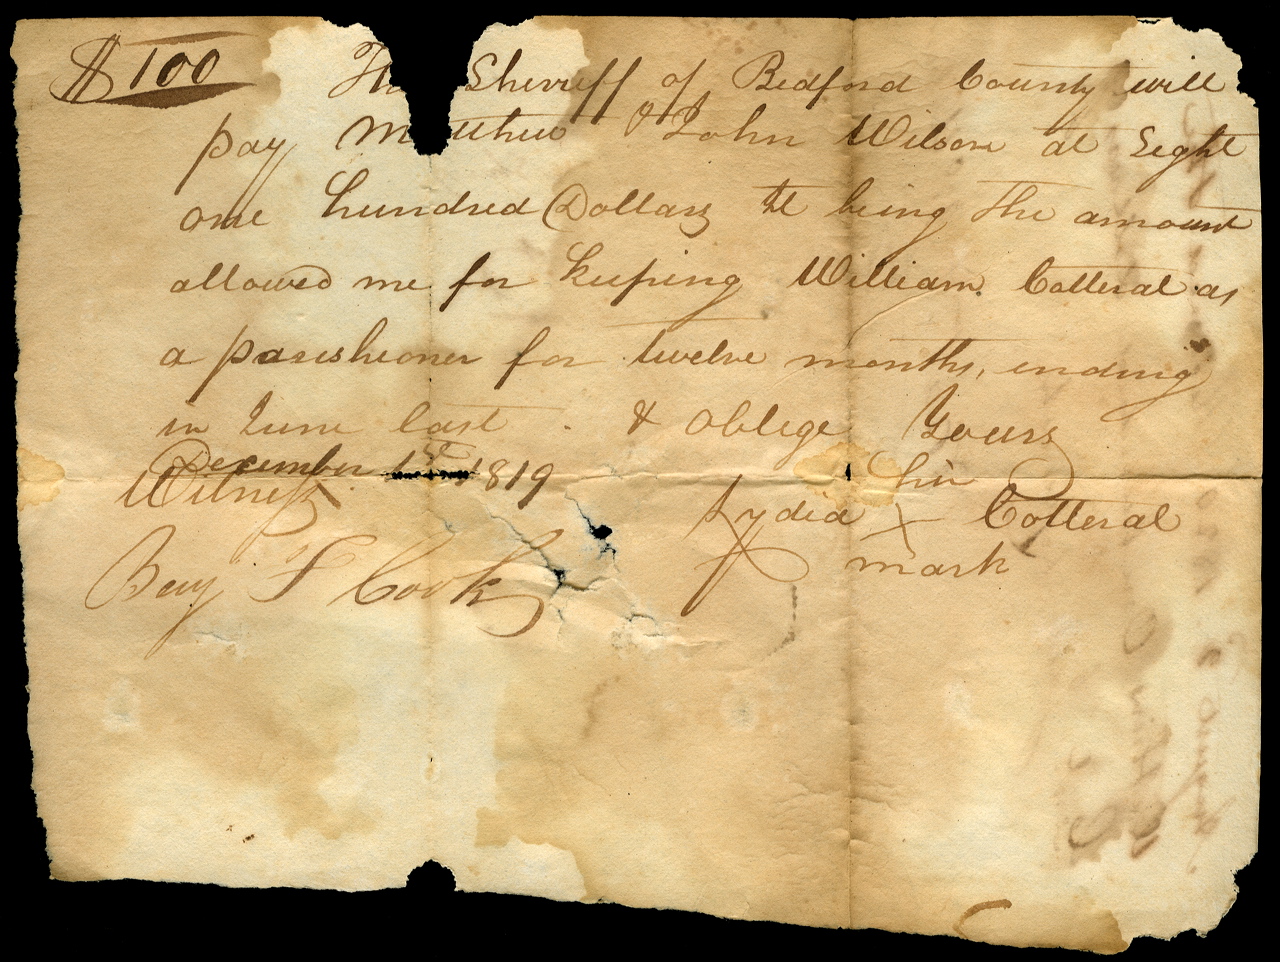 $100 The Sherriff of Bedford County will
pay Matthew & John Wilson at Sight
one hundred Dollars it being the amount
allowed me for keeping William Cotteral as
a parishioner for twelve months, ending
in June last. & oblege Yours
December 1st 1819
Witness
his
Lydia X Cotteral
mark
Benj F Cook